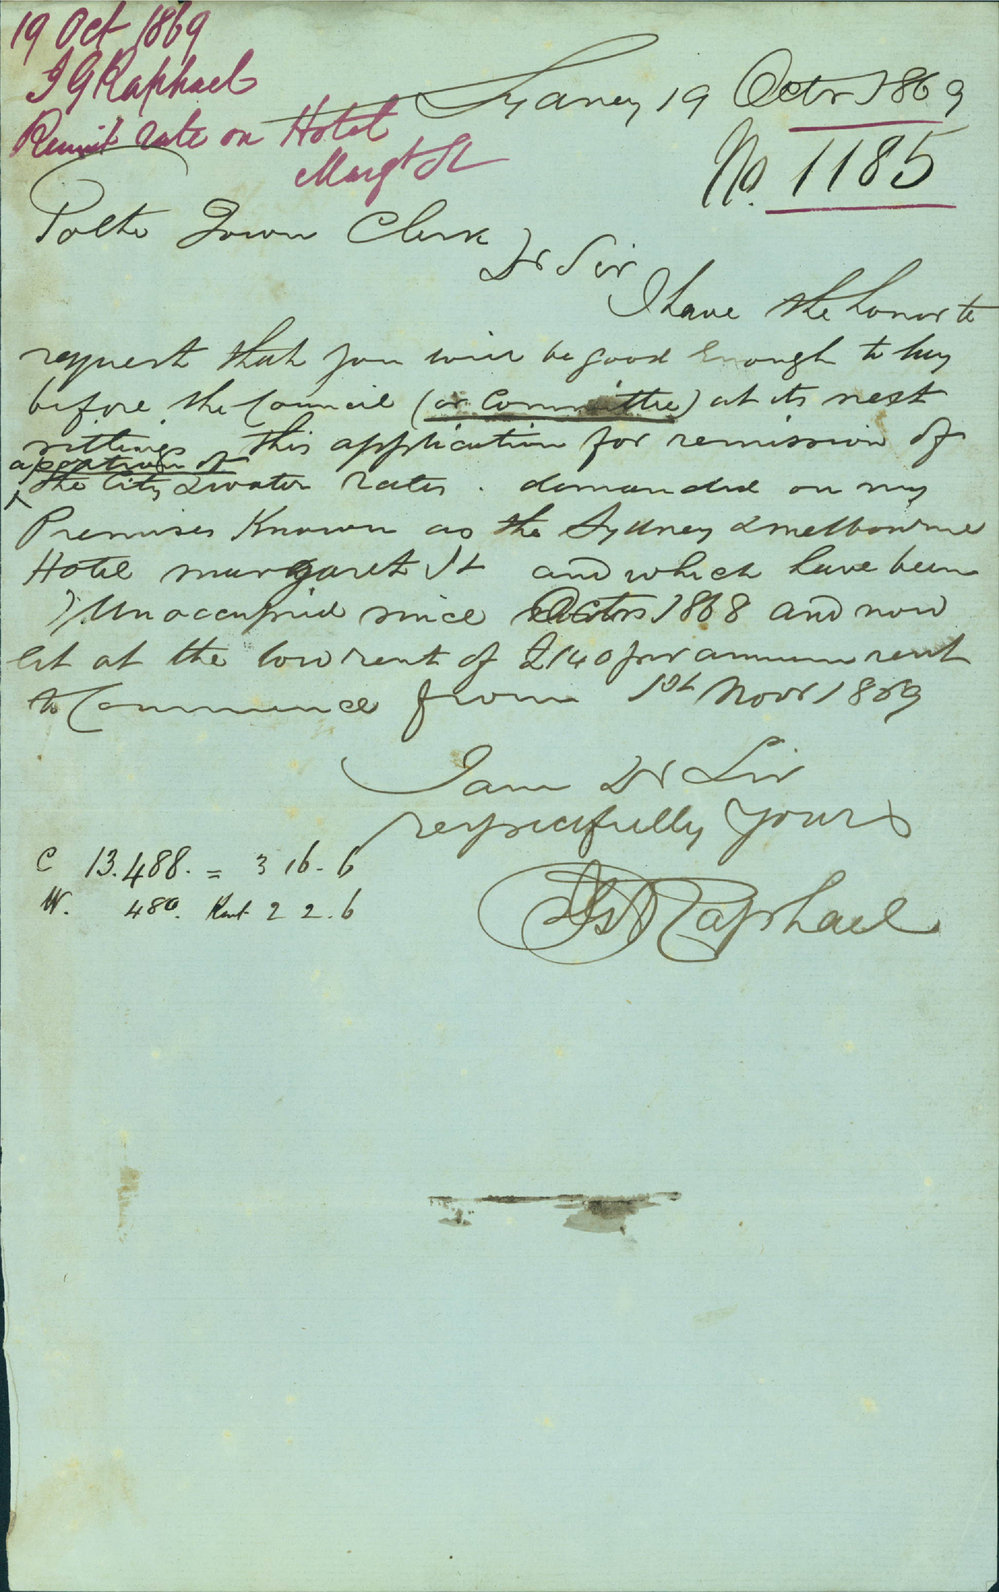 19 Oct 1869
J G Raphael
Remit rate on Hotel
Margt St
Sydney 19 Octr 1869
No. 1185
To the Town Clerk
Dr Sir
I have the honor to
request that you will be good Enough to lay
before the Council (or Committee) at its next
sittings this application for remission of
a portion of
the City & water rates. demanded on my
Premises Known as the Sydney & melbourne
Hotel margaret St and which have been
Unoccupied since Octr 1868 and now
let at the low rent of £140 per annum rent
to Commence from 1st Novr 1869
I am Dr Sir
respectfully yours
J G Raphael
C 13.488. = 3 16. 6
W. 480. 2 2. 6